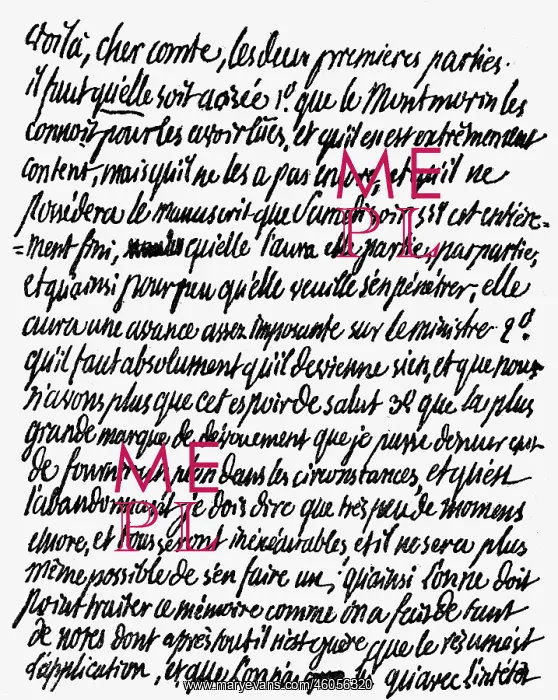 voilà, cher comte, les deux premieres parties.
il faut qu'elle soit avisée 1º. que le Montmorin les
connoît pour les avoir lues, et qu'il en est extrêmement
content, mais qu'il ne les a pas encore, et qu'il ne
possédera le manuscrit que Samedi soir s'il est entière=
=ment fini, qu'elle l'aura partie par partie,
et qu'ainsi pour peu qu'elle veuille s'en pénétrer, elle
aura une avance assez imposante sur le ministre 2º.
qu'il faut absolument qu'il devienne sien, et que nous
n'avons plus que cet espoir de salut 3º que la plus
grande marque de dévouement que je puisse donner
de fournir dans les circonstances, et qu'en
l'abandonnant je dois dire que très peu de momens
encore, et tous seront inénarrables et il ne sera plus
même possible de s'en faire un, qu'ainsi l'on ne doit
point traiter ce mémoire comme on a fait de tant
de notes dont après tout il n'est guère que le résumé et
d'application, et que l'on n'a qu'avec l'intérêt
ME
PL
ME
PL
www.maryevans.com/46056320